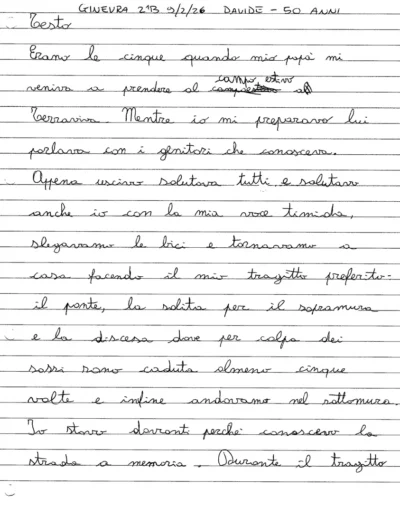 GINEVRA 2ªB 9/2/26 DAVIDE - 50 ANNI
Testo
Erano le cinque quando mio papà mi
campo estivo
veniva a prendere al a
Terraviva. Mentre io mi preparavo lui
parlava con i genitori che conosceva.
Appena uscivo salutava tutti e salutavo
anche io con la mia voce timida,
slegavamo le bici e tornavamo a
casa facendo il mio tragitto preferito:
il ponte, la salita per il sopramura
e la discesa dove per colpa dei
sassi sono caduta almeno cinque
volte e infine andavamo nel sottomura.
Io stavo davanti perché conoscevo la
strada a memoria. Durante il tragitto